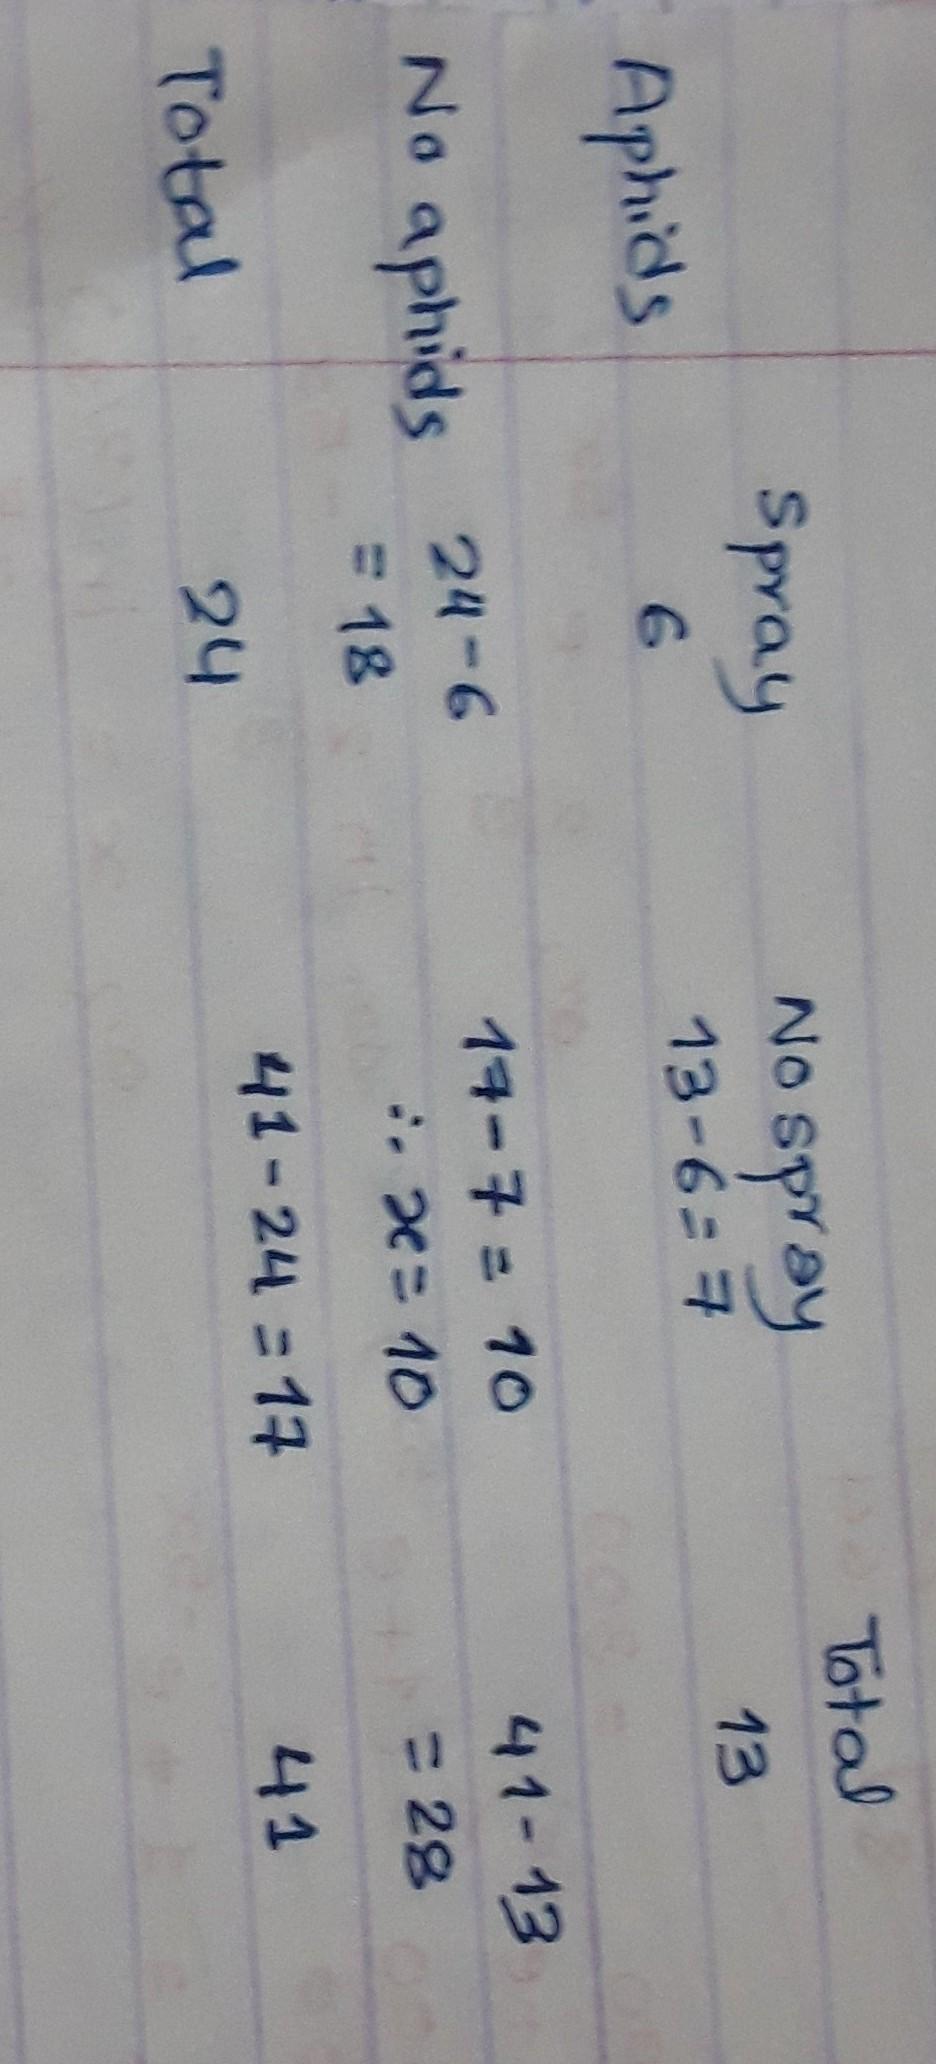 Spray No spray Total
Aphids 6 13-6=7 13
No aphids 24-6 17-7=10 41-13
=18 ∴ x=10 =28
Total 24 41-24=17 41